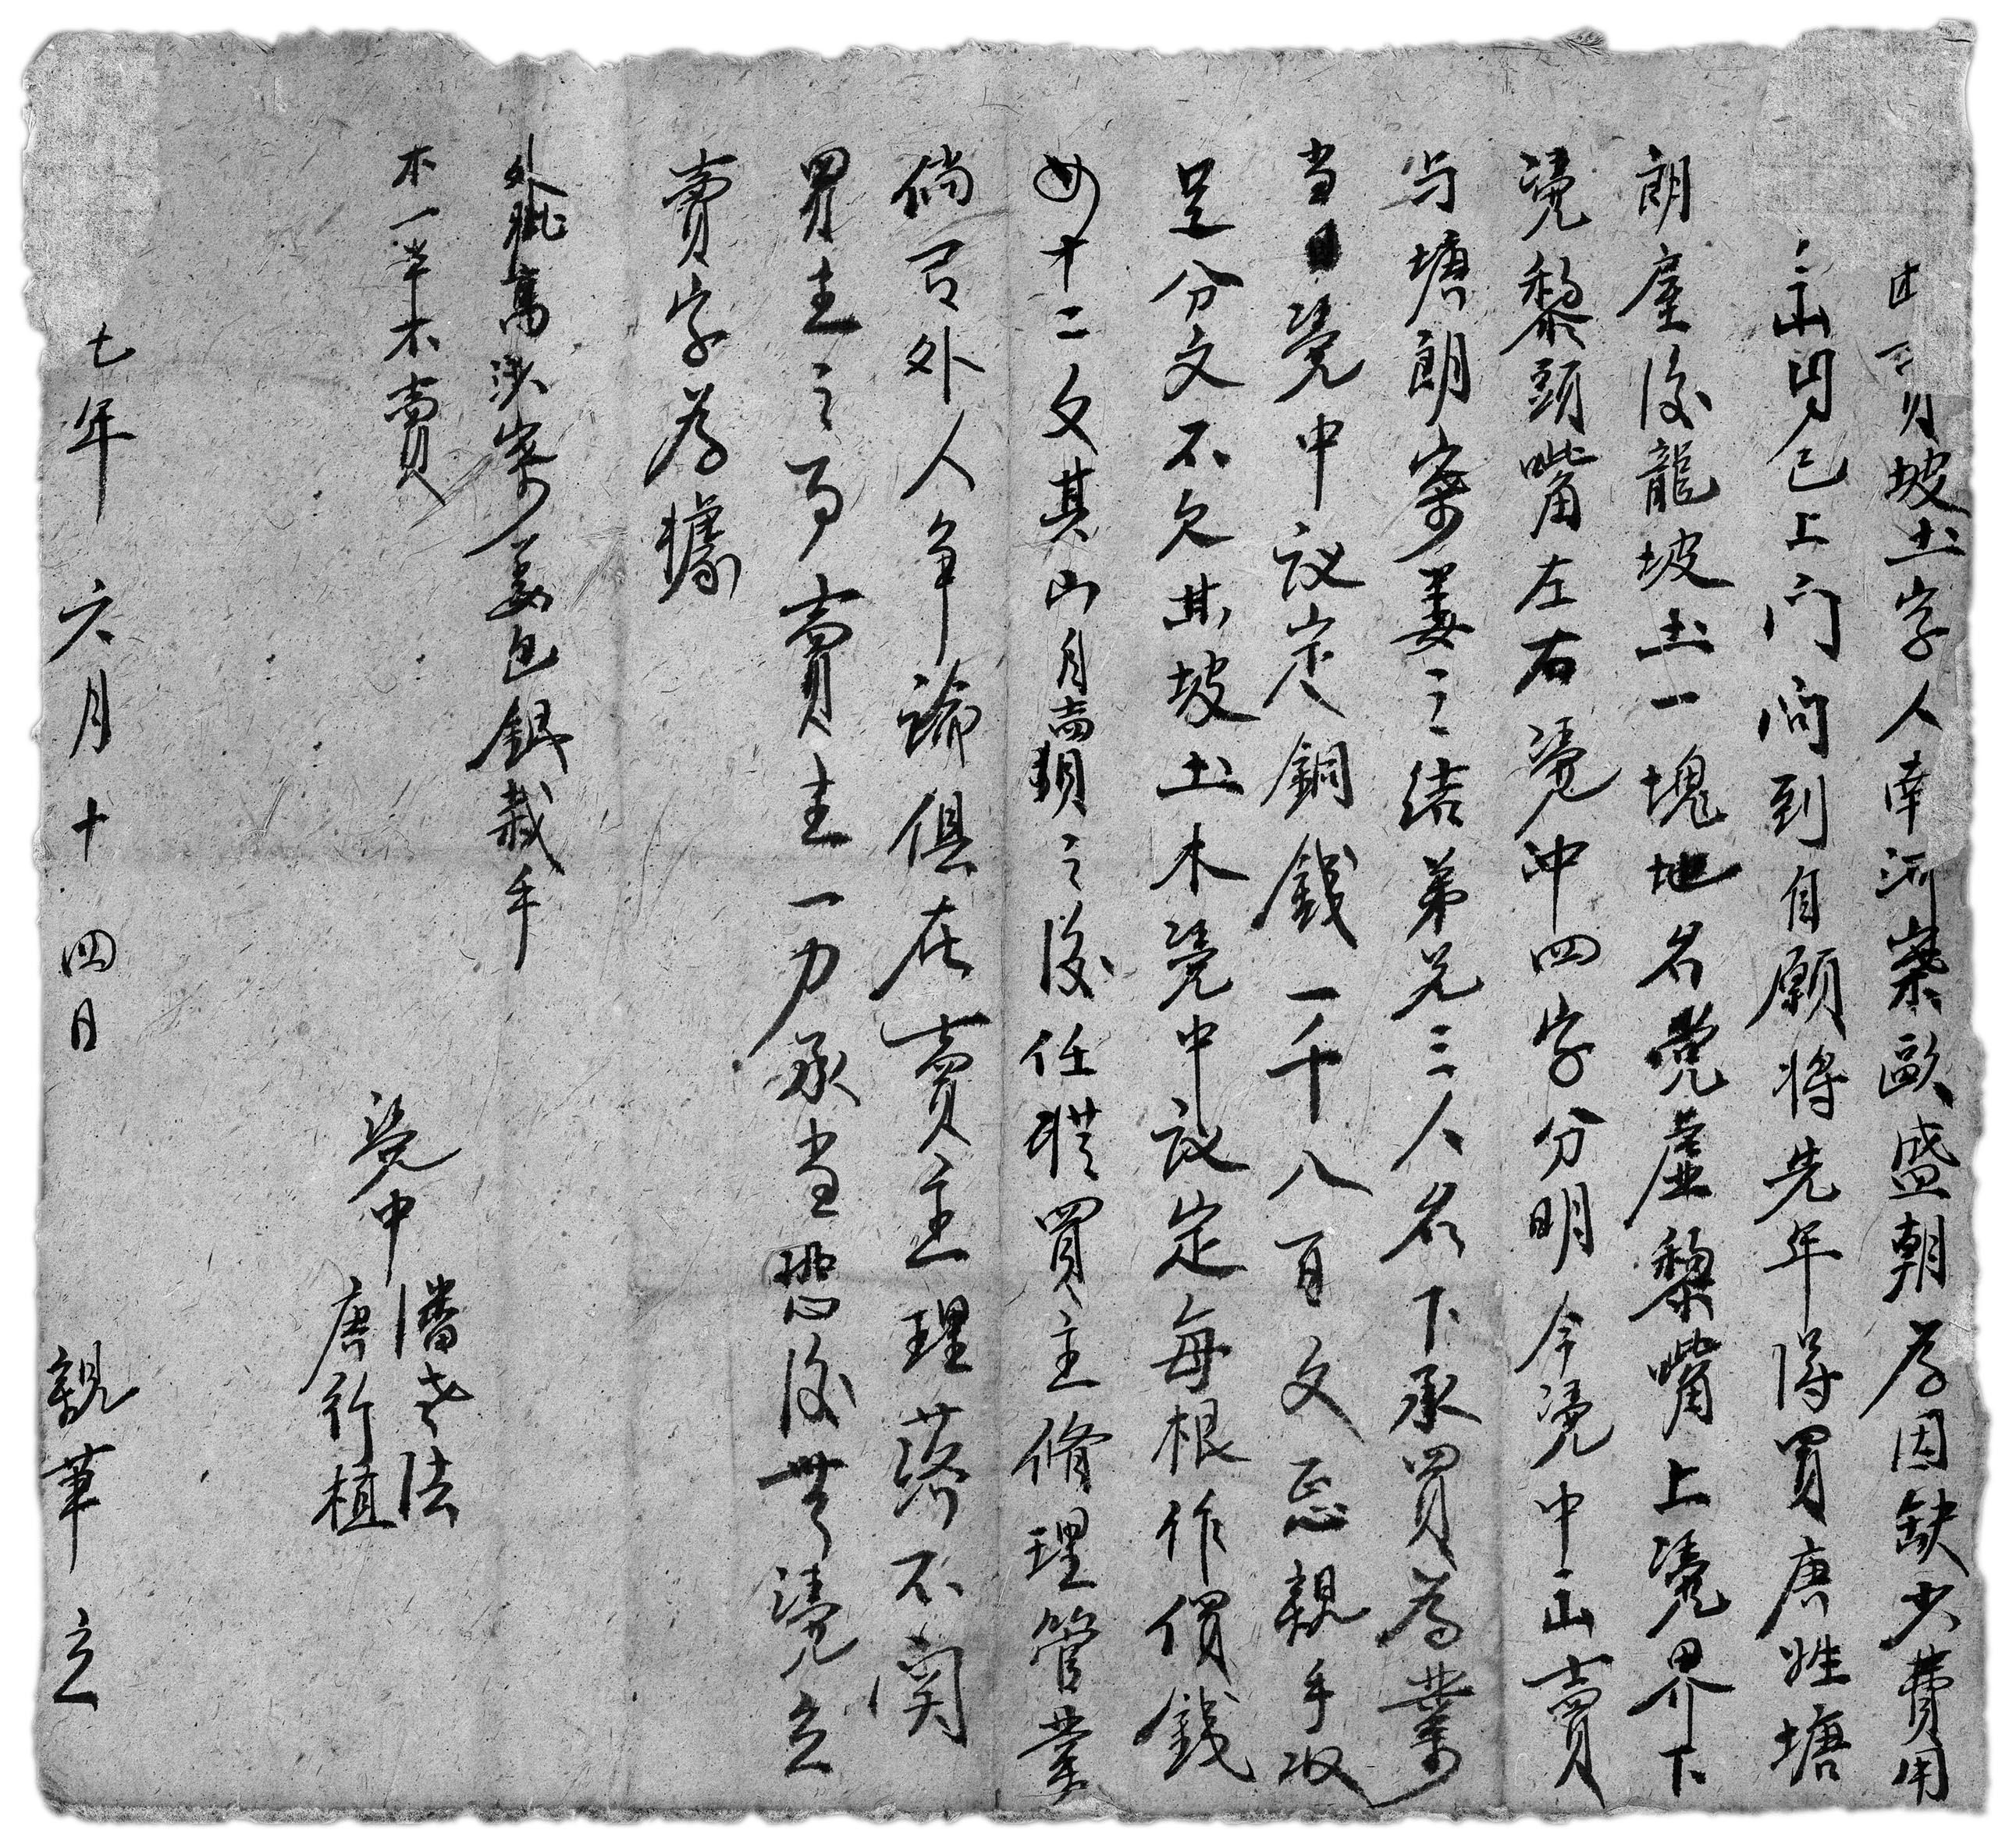 坡土字人南河寨歐盛朝為因缺少費用
上門問到自願将先年得買唐姓塘
朗屋後龍坡土一塊地名凴虚黎嘴上凴界下
凴黎頭嘴左右凴冲四字分明今凴中出賣
与塘朗寨姜之结弟兄三人名下承買為業
当日凴中议定銅錢一千八百文正親手收
足分文不欠其坡土木凴中议定每根作價錢
十二文其山自賣之後任從買主脩理管業
倘有外人争論俱在賣主理落不関
買主之事賣主一力承当恐後無凴立
賣字為據
外批高沙寨姜包銀栽手
木一半木賣
凴中 潘老法
唐行植
七年六月十四日 親筆 立